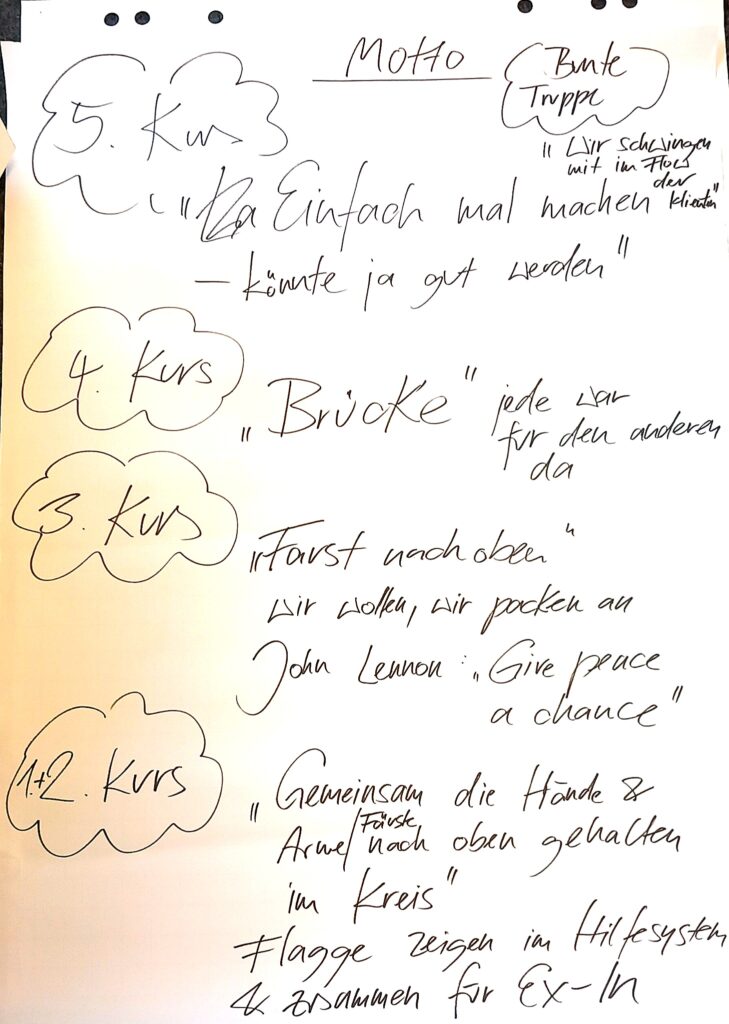 Motto
Bunte
Truppe
5. Kurs
"Wir schwingen
mit im Flow
der
Klienten"
„Einfach mal machen
– könnte ja gut werden"
4. Kurs
„Brücke" jede war
für den anderen
da
3. Kurs
„Faust nach oben"
wir wollen, wir packen an
John Lennon: „Give peace
a chance"
1.+2. Kurs
„Gemeinsam die Hände &
Fäuste
Arme/nach oben gehalten
im Kreis"
Flagge zeigen im Hilfesystem
& zusammen für Ex-In